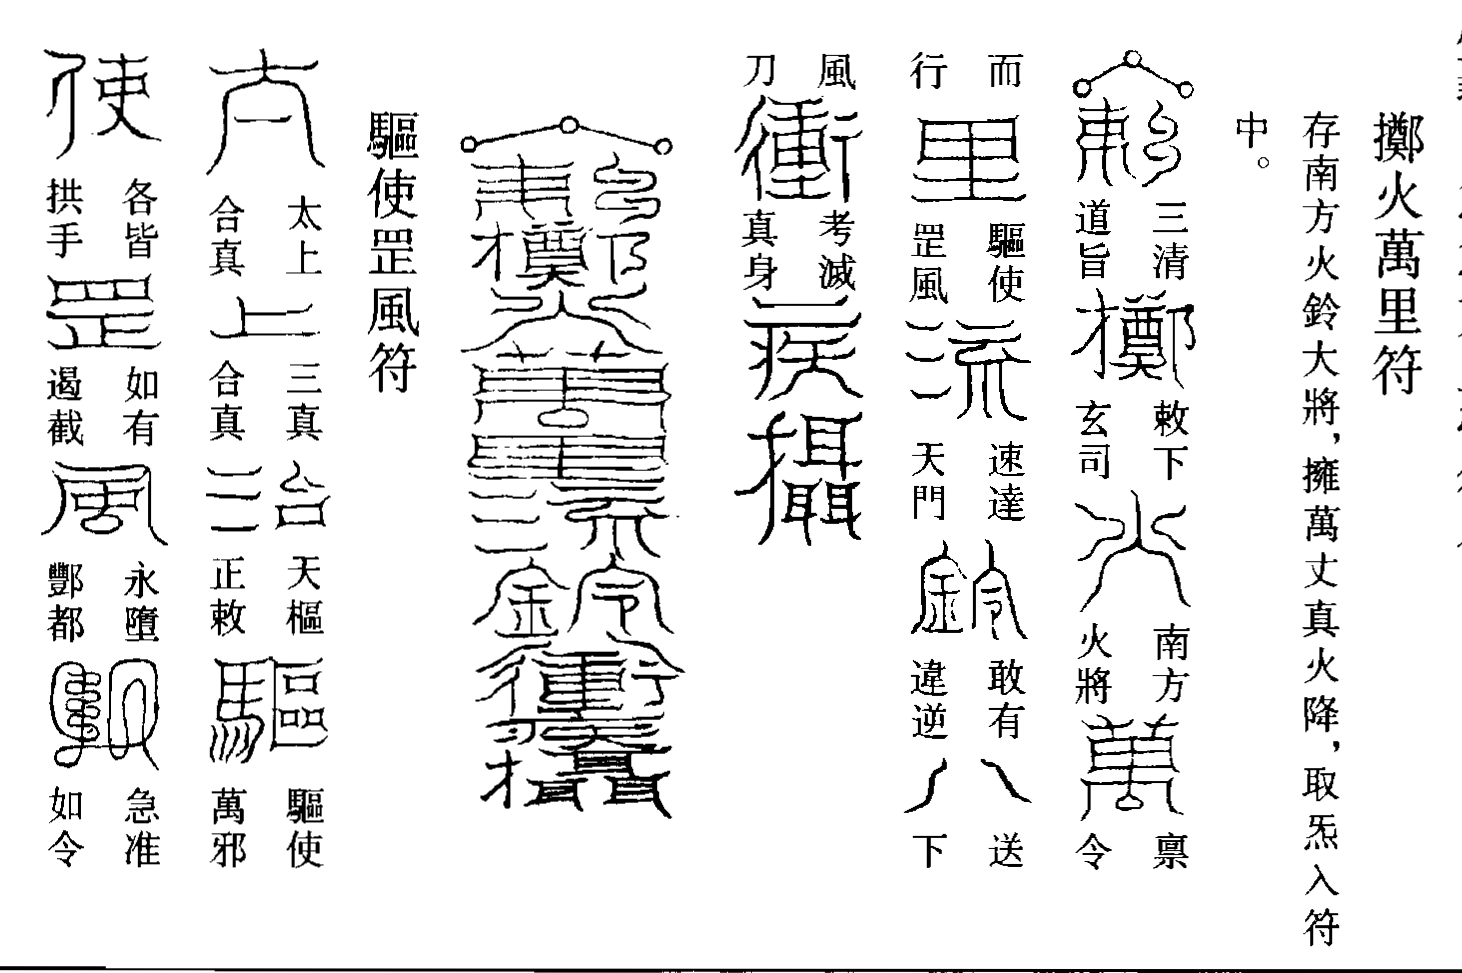 擲火萬里符
存南方火鈴大將，擁萬丈真火降，取炁入符
中。
敕三清道旨擲敕下玄司火南方火將萬禀令
而行里驅使罡風流速達天門鈴敢有違逆八送下
風刀衝考滅真身疾攝
驅使罡風符
太太上合真上三真合真三台天樞正敕驅驅使萬邪
使各皆拱手罡如有遏截風永墮酆都急准如令